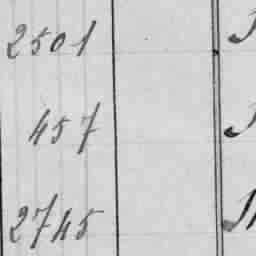 2501
457
2745